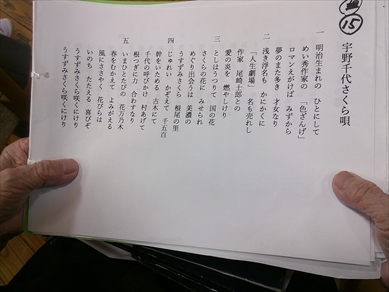 ⑮
宇野千代さくら唄
一 明治生まれの ひとにして
めい秀作家の 「色ざんげ」
ロマンえがけば みずから
夢のまた多き 才女なり
二 浅き浮名も かにかくに
「人生劇場」 名も売れし
作家 尾崎士郎との
愛の炎を 燃やしけり
三 としはうつりて 国の花
さくらの花に みせられ
めぐり出会うは 美濃の
うすずみさくら 根尾の里
四 じゅれい かぞえて 千五百
幹をいためし 古木にて
千代の呼びかけ 村あげて
根つぎに力 合わすなり
五 いまひとたびの 花万乃木
春をむかえて よみがえる
風にささやく 花びらは
いのち たたえる 喜びぞ
うすずみさくら咲くにけり
うすずみさくら咲くにけり